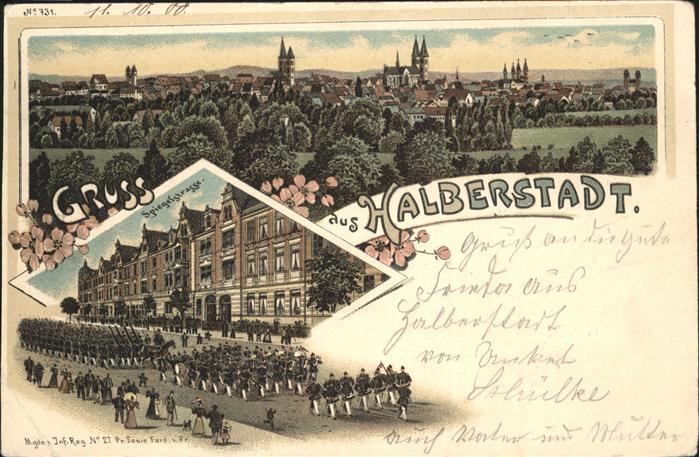 No. 731.
11. 10. 00.
GRUSS
aus HALBERSTADT.
Spiegelstrasse.
Gruß an die gute
Frieda aus
Halberstadt
von Onkel
Schülke
auch Vater und Mutter
Mgdb. Inf. Reg. No 27 Pr. Louis Ferd. v. Pr.